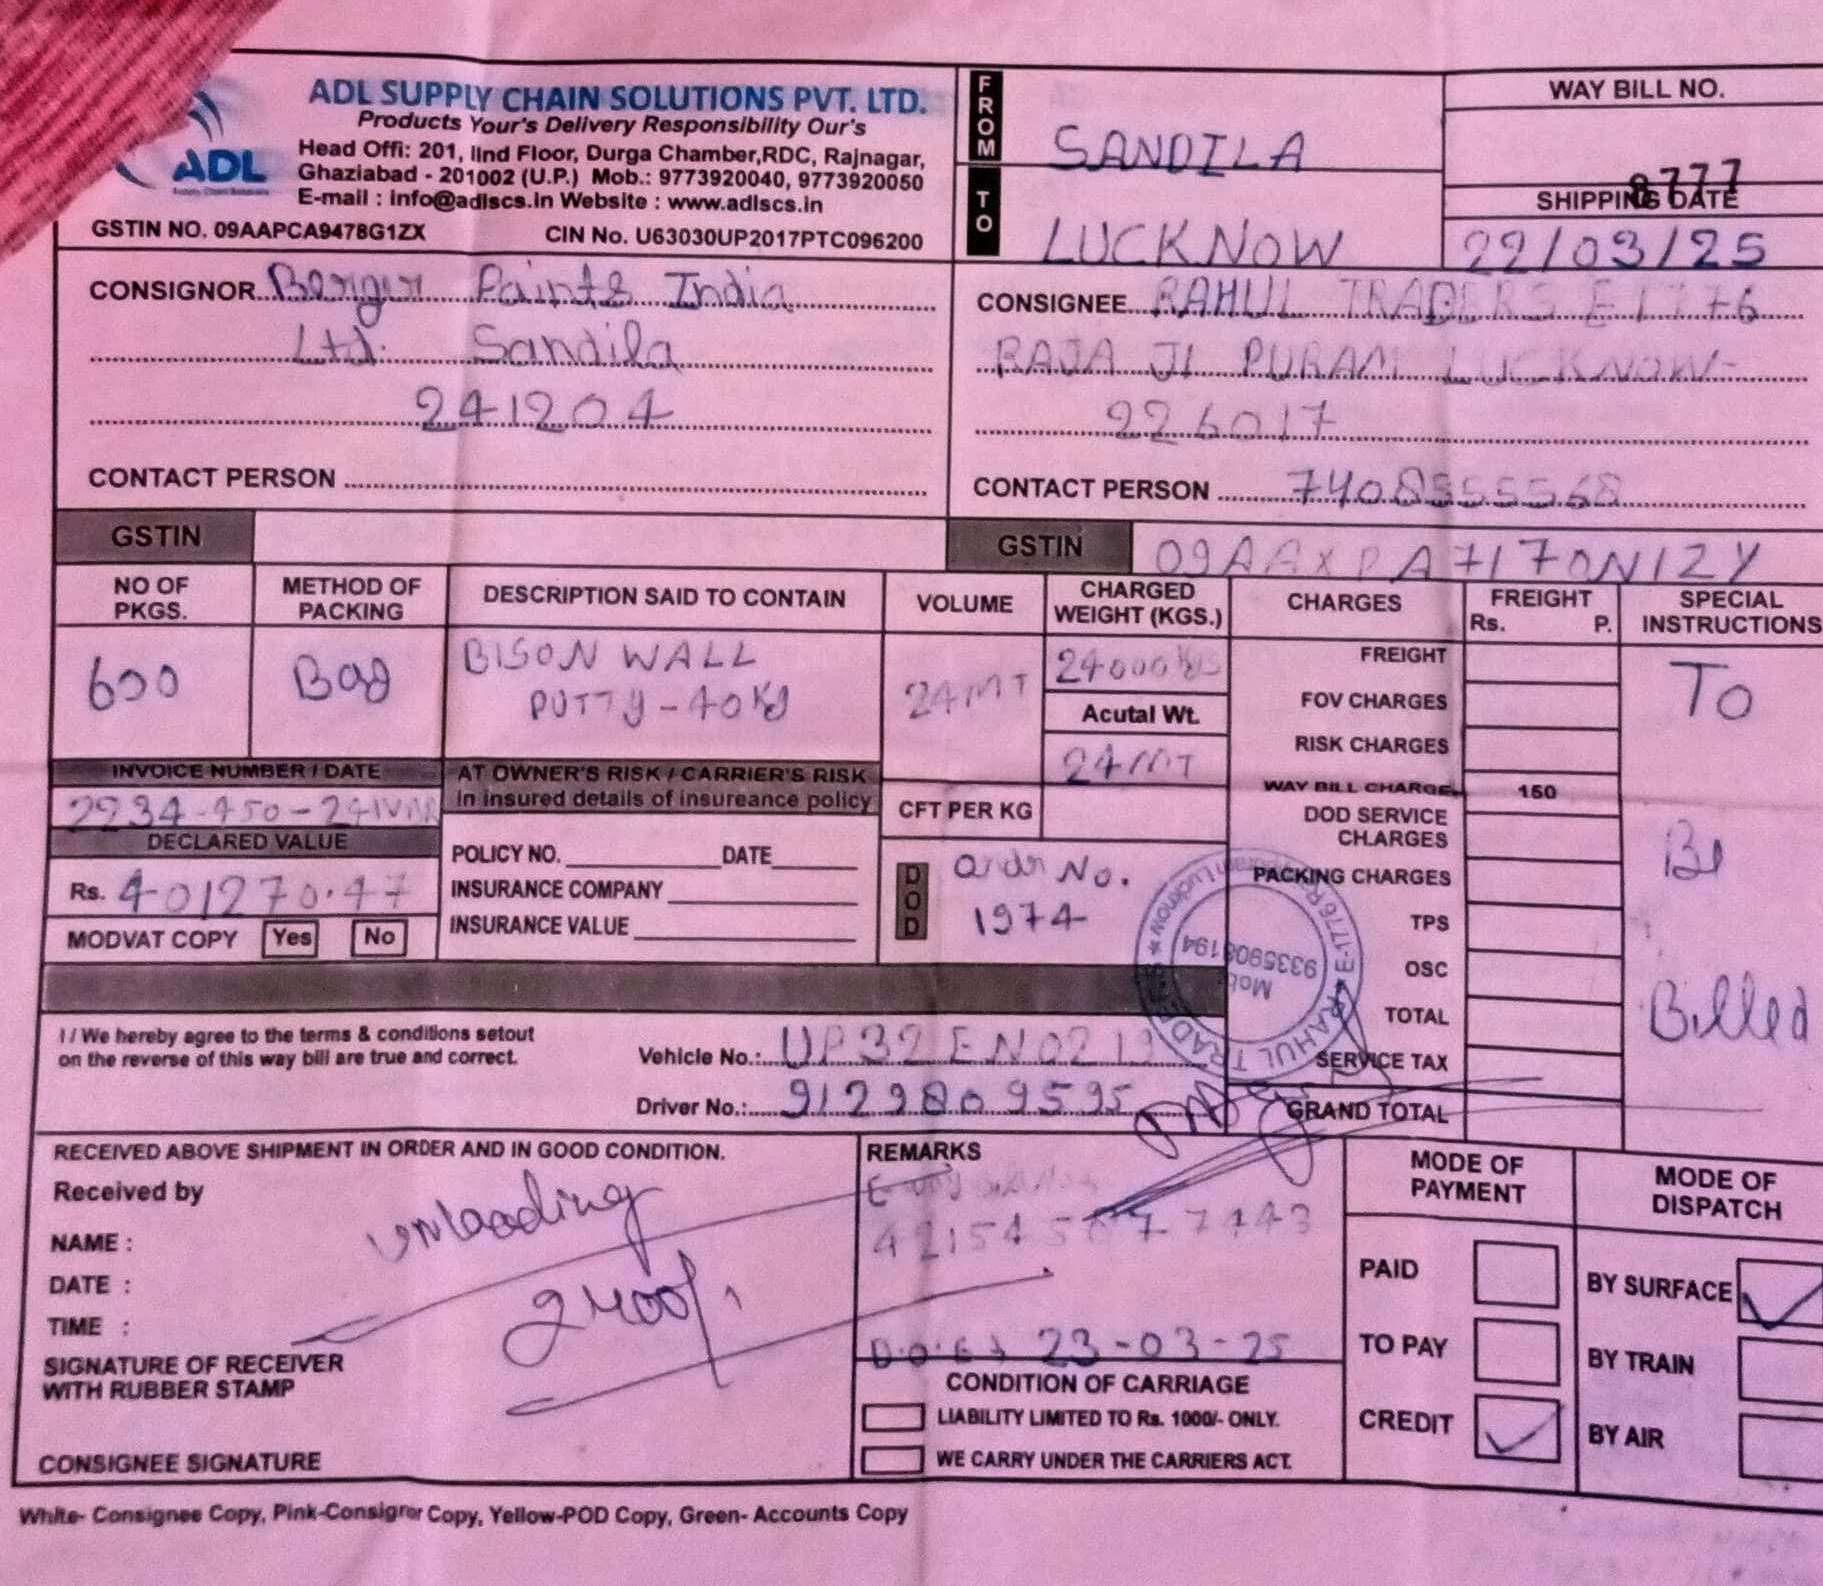 ADL SUPPLY CHAIN SOLUTIONS PVT. LTD.
Products Your's Delivery Responsibility Our's
Head Offi: 201, IInd Floor, Durga Chamber,RDC, Rajnagar,
Ghaziabad - 201002 (U.P.) Mob.: 9773920040, 9773920050
E-mail : info@adlscs.in Website : www.adlscs.in
GSTIN NO. 09AAPCA9478G1ZX CIN No. U63030UP2017PTC096200
ADL
FROM SANDILA
TO LUCKNOW
WAY BILL NO.
8777
SHIPPING DATE
22/03/25
CONSIGNOR Berger Paints India
Ltd. Sandila
241204
CONTACT PERSON
CONSIGNEE RAHUL TRADERS E1776
RAJA JI PURAM LUCKNOW-
226017
CONTACT PERSON 7408555568
GSTIN
GSTIN 09AAXPA7170N1ZY
NO OF PKGS.
METHOD OF PACKING
DESCRIPTION SAID TO CONTAIN
VOLUME
CHARGED WEIGHT (KGS.)
CHARGES
FREIGHT
Rs. P.
SPECIAL INSTRUCTIONS
600
Bag
BISON WALL
PUTTY-40Kg
24MT
24000
Acutal Wt.
24MT
FREIGHT
FOV CHARGES
RISK CHARGES
WAY BILL CHARGE 150
DOD SERVICE CHARGES
PACKING CHARGES
TPS
OSC
TOTAL
SERVICE TAX
GRAND TOTAL
To
Be
Billed
INVOICE NUMBER / DATE
DECLARED VALUE
Rs. 401270.47
MODVAT COPY Yes No
AT OWNER'S RISK / CARRIER'S RISK
In insured details of insureance policy
POLICY NO. DATE
INSURANCE COMPANY
INSURANCE VALUE
CFT PER KG
DOD
Order No.
1974
RAHUL TRADERS
E-1776
Lucknow
Mob
9335908194
I / We hereby agree to the terms & conditions setout
on the reverse of this way bill are true and correct.
Vehicle No.: UP32EN0219
Driver No.: 9129809595
RECEIVED ABOVE SHIPMENT IN ORDER AND IN GOOD CONDITION.
Received by
NAME :
DATE :
TIME :
SIGNATURE OF RECEIVER
WITH RUBBER STAMP
CONSIGNEE SIGNATURE
unloading
2400/.
REMARKS
23-03-25
CONDITION OF CARRIAGE
LIABILITY LIMITED TO Rs. 1000/- ONLY.
WE CARRY UNDER THE CARRIERS ACT.
MODE OF PAYMENT
PAID
TO PAY
CREDIT
MODE OF DISPATCH
BY SURFACE
BY TRAIN
BY AIR
White- Consignee Copy, Pink-Consignor Copy, Yellow-POD Copy, Green- Accounts Copy